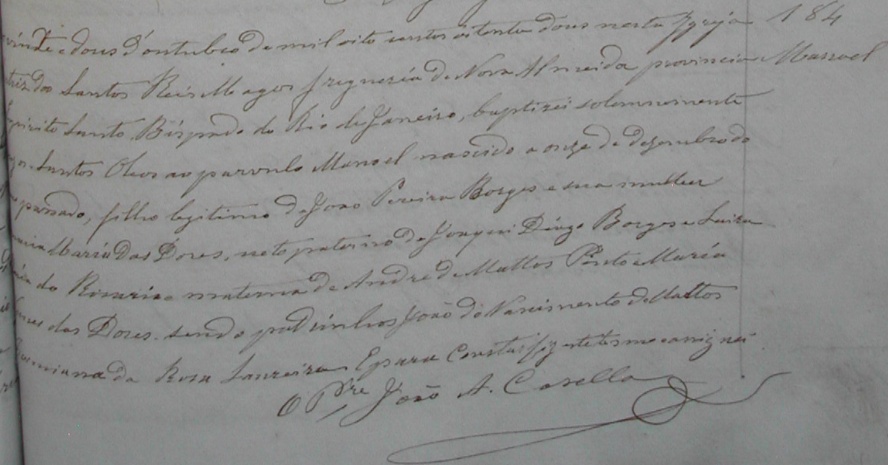 vinte e dous d'outubro de mil oito centos oitenta dous nesta Igreja 184
triz dos Santos Reis Magos freguezia de Nova Almeida provincia Manoel
Espirito Santo Bispado do Rio de Janeiro, baptizei solemnemente
Santos Oleos ao parvulo Manoel nascido a onze de dezembro do
passado, filho legitimo de João Pereira Borges e sua mulher
Maria das Dores, neto paterno de Joaquim Borges e Luiza
do Rosario e materna de André de Mattos Pinto e Maria
das Dores sendo padrinhos João do Nascimento de Mattos
da Rosa Loureiro. E para Constar fiz este termo e assignei
O Pdre João A. Casella